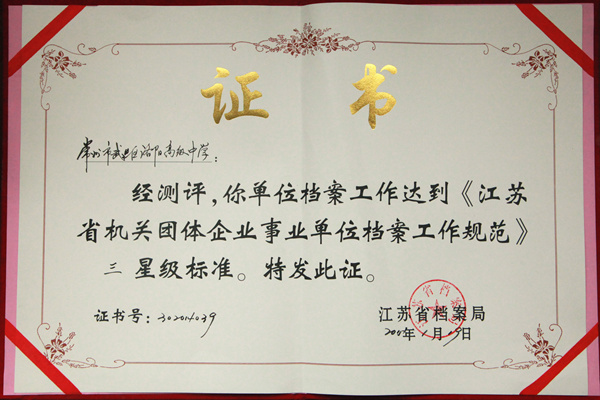 证书
常州市武进区洛阳高级中学：
经测评，你单位档案工作达到《江苏
省机关团体企业事业单位档案工作规范》
三星级标准。特发此证。
证书号：
江苏省档案局